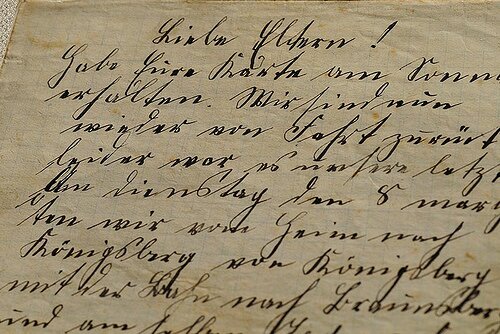 Liebe Eltern!
Habe Eure Karte am Sonn
erhalten. Wir sind nun
wieder von Fahrt zurück
leider war es unsere letzt
Am dienstag den 8 mar
ten wir vom Heim nach
Königsberg von Königsberg
mit der Bahn nach Braunsber
und am selben